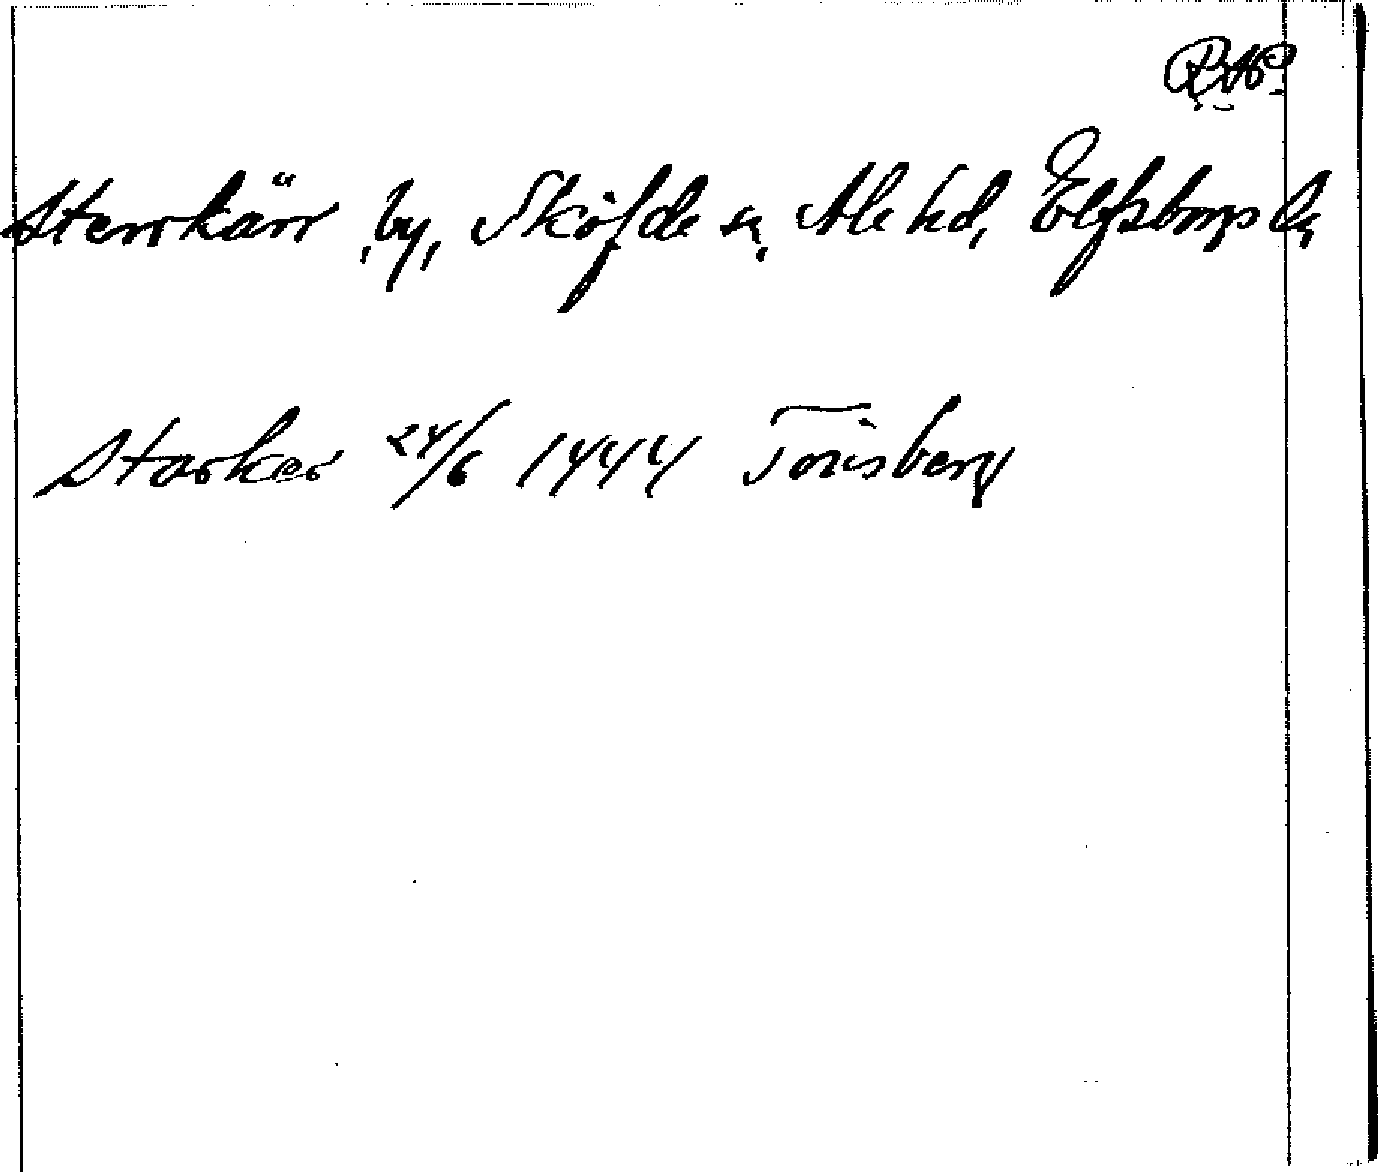 RAP
Sterrkärr, by, Sköfde sn, Ale hd, Elfsborgs l.
Starker 24/6 1444 Tønsberg